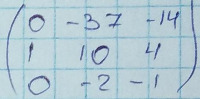 0 -37 -14
1 10 4
0 -2 -1